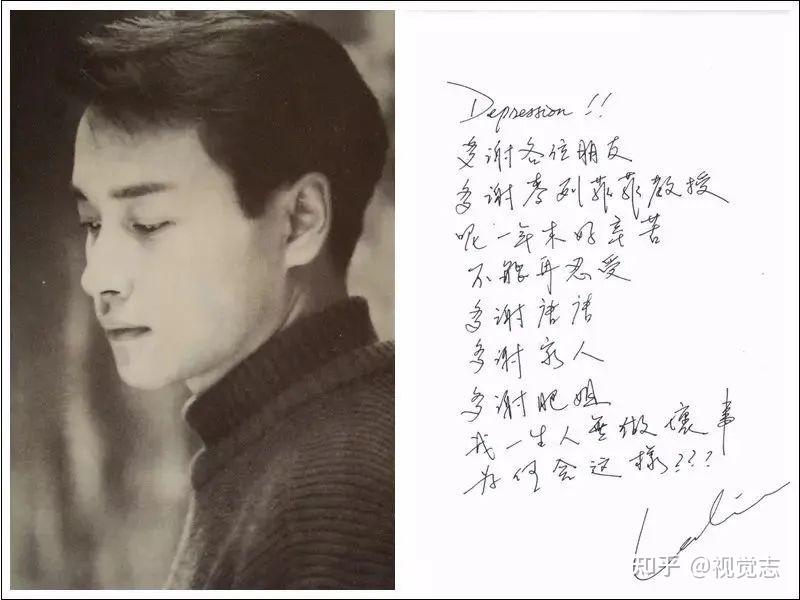 Depression!!
多谢各位朋友
多谢麦列菲菲教授
呢一年来好辛苦
不能再忍受
多谢唐唐
多谢家人
多谢肥姐
我一生人無做壞事
为何会这樣???
Leslie
知乎 @视觉志